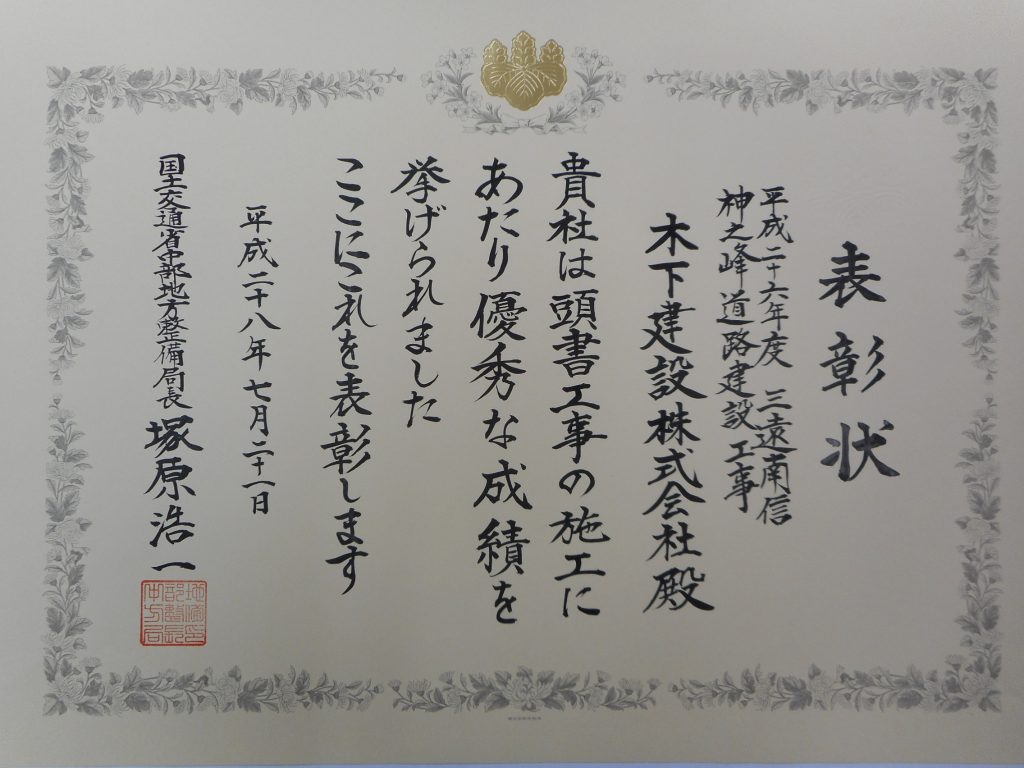 表彰状
平成二十六年度 三遠南信
神之峰道路建設工事
木下建設株式会社殿
貴社は頭書工事の施工に
あたり優秀な成績を
挙げられました
ここにこれを表彰します
平成二十八年七月二十一日
国土交通省中部地方整備局長 塚原浩一